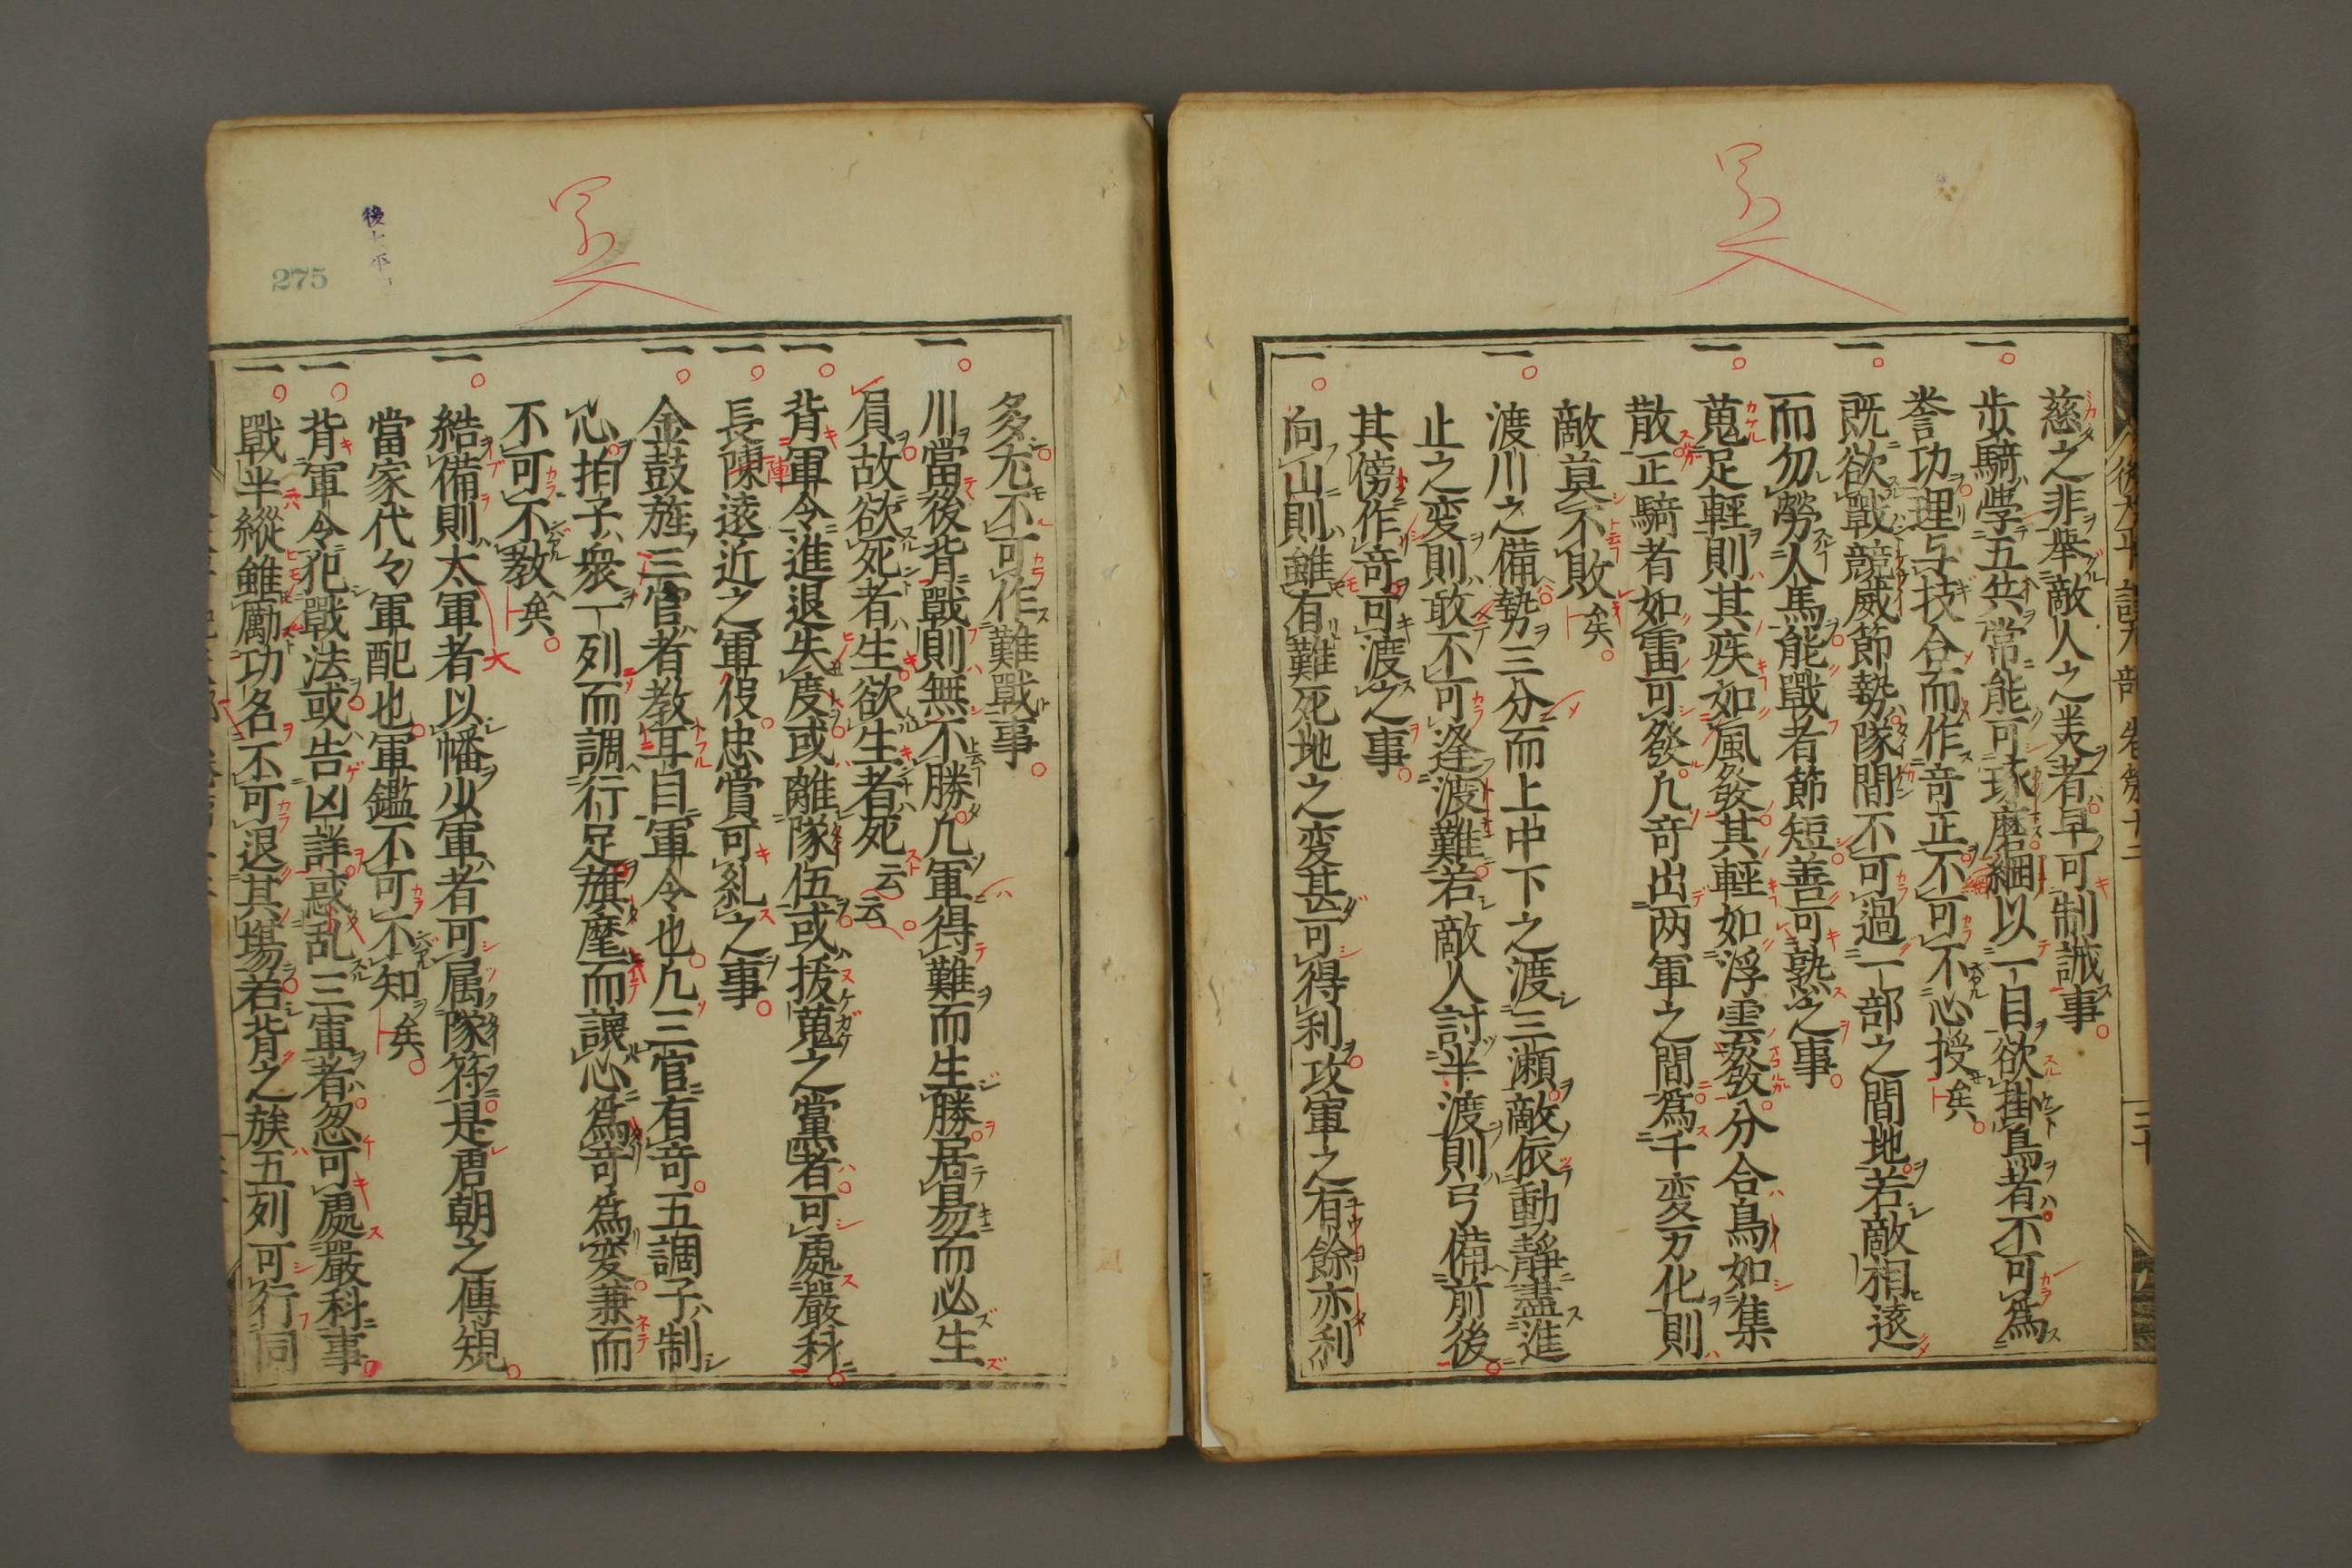 慈之非舉敵人之美者早可制誡事
一步騎學五兵常能可琢磨綱以一目欲掛鳥者不可爲
誉功理与技合而作奇正不可不心授矣
一既欲戰競威節勢隊間不可過一部之間地若敵相遠
而勿勞人馬能戰者節短善可熟之事
一蒐足輕則其疾如風發其輕如浮雲發分合鳥如集
散正騎者如雷可發凡奇出两軍之間爲千変万化則
敵莫不敗矣
一渡川之備勢三分而上中下之渡三瀬敵依動靜盡進
止之変則敢不可逢渡難若敵人討半渡則弓備前後
其傍作奇可渡之事
一向山則雖有難死地之変甚可得利攻軍之有餘亦利
多尤不可作難戰事
一川當後背戰則無不勝凡軍得難而生勝居易而必生
眉故欲死者生欲生者死云云
一背軍令進退失度或離隊伍或拔蒐之黨者可處嚴科
一長陳遠近之軍役忠賞可糺之事
一金鼓旌三官者教耳目軍令也凡三官有奇五調子制
心拍子衆一列而調行足旗麾而讓心爲奇爲変兼而
不可不教矣
一結備則太軍者以幡少軍者可属隊符是唐朝之傳規
當家代々軍配也軍鑑不可不知矣
一背軍令犯戰法或告凶詳惑乱三軍者忽可處嚴科事
一戰半縱雖勵功名不可退其場若背之族五列可行同
後太平記
275